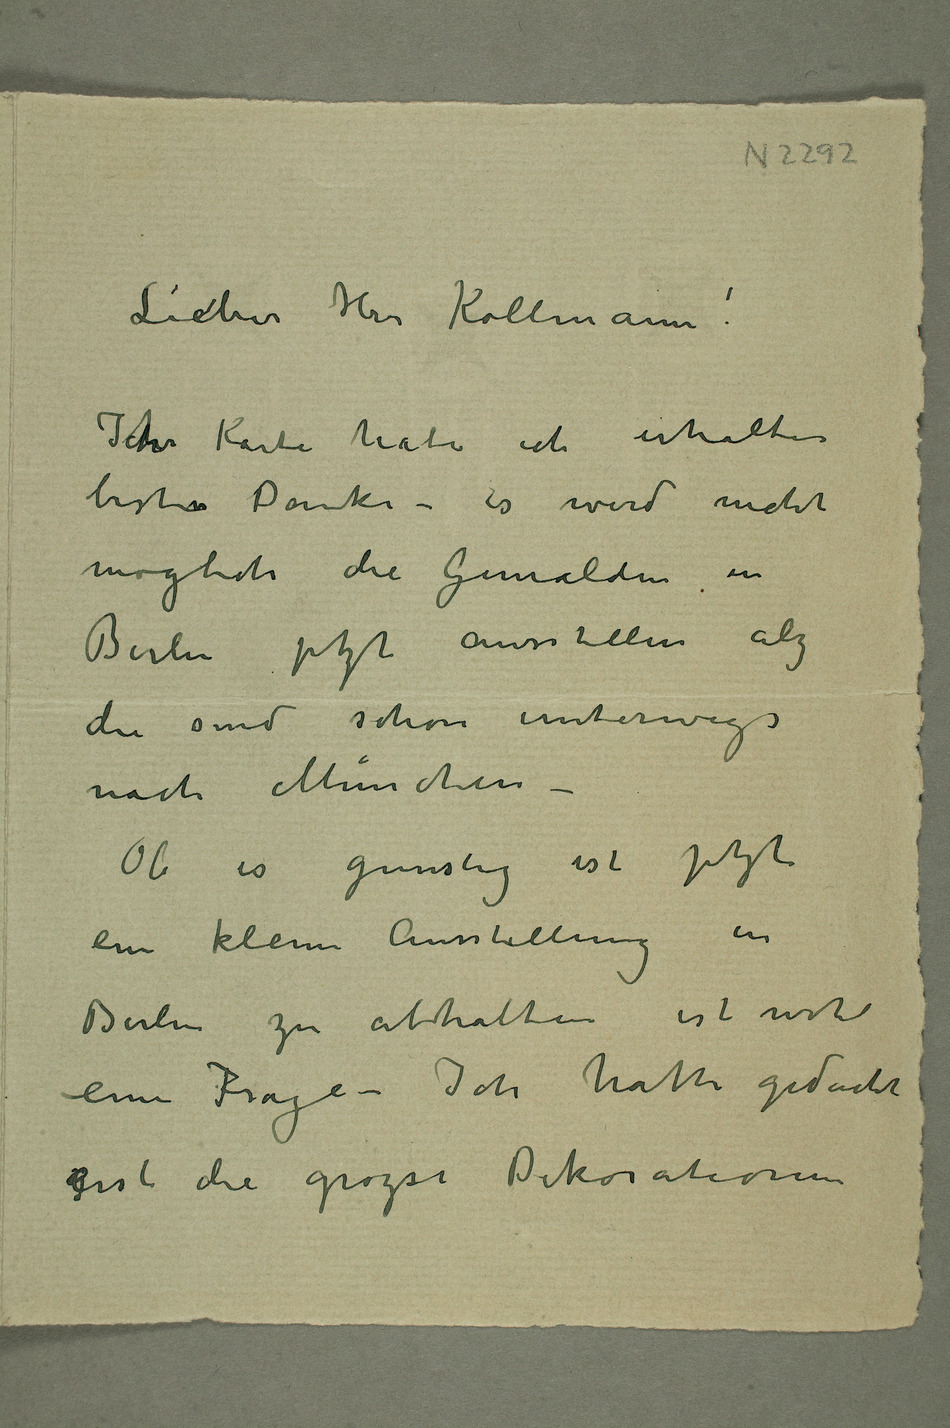 N 2292
Lieber Herr Kollmann!
Ihr Karte habe ich erhalten
besten Danke – es wird nicht
möglich die Gemälden in
Berlin jetzt ausstellen als
die sind schon unterwegs
nach München –
Ob es gunstig ist jetzt
ein kleine Ausstellung in
Berlin zu abhalten ist wohl
eine Frage – Ich hatte gedacht
erst die grozse Dekorationen